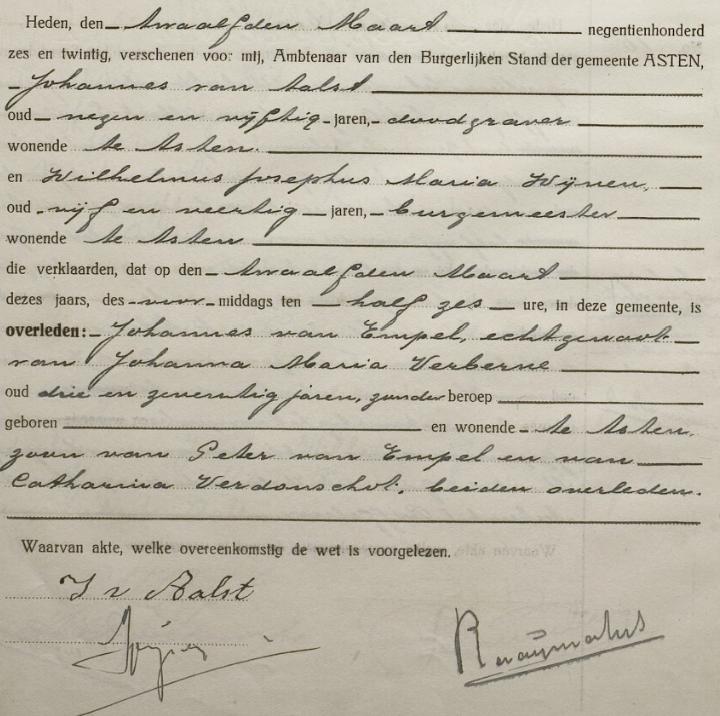 Heden, den Twaalfden Maart negentienhonderd
zes en twintig, verschenen voor mij, Ambtenaar van den Burgerlijken Stand der gemeente ASTEN,
Johannes van Aalst
oud negen en vijftig jaren, doodgraver
wonende te Asten.
en Wilhelmus Josephus Maria Wijnen,
oud vijf en veertig jaren, burgemeester
wonende te Asten
die verklaarden, dat op den Twaalfden Maart
dezes jaars, des voor middags ten half zes ure, in deze gemeente, is
overleden: Johannes van Empel, echtgenoot
van Johanna Maria Verberne
oud drie en zeventig jaren, zonder beroep
geboren en wonende te Asten,
zoon van Peter van Empel en van
Catharina Verdonschot, beiden overleden.
Waarvan akte, welke overeenkomstig de wet is voorgelezen.
J v Aalst
Wijnen
Raaijmakers